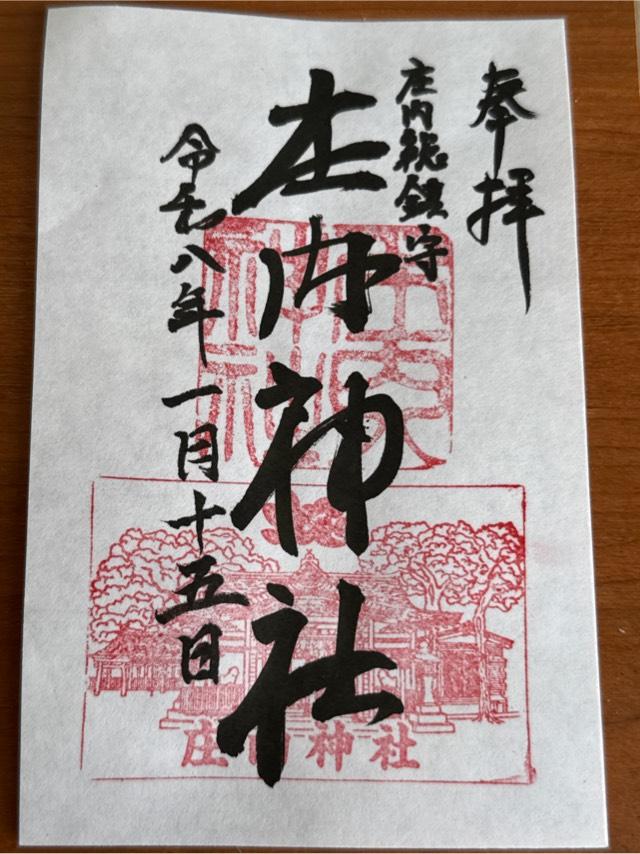 奉拝
庄内総鎮守
庄内神社
令和八年一月十五日
庄内神社
庄内神社